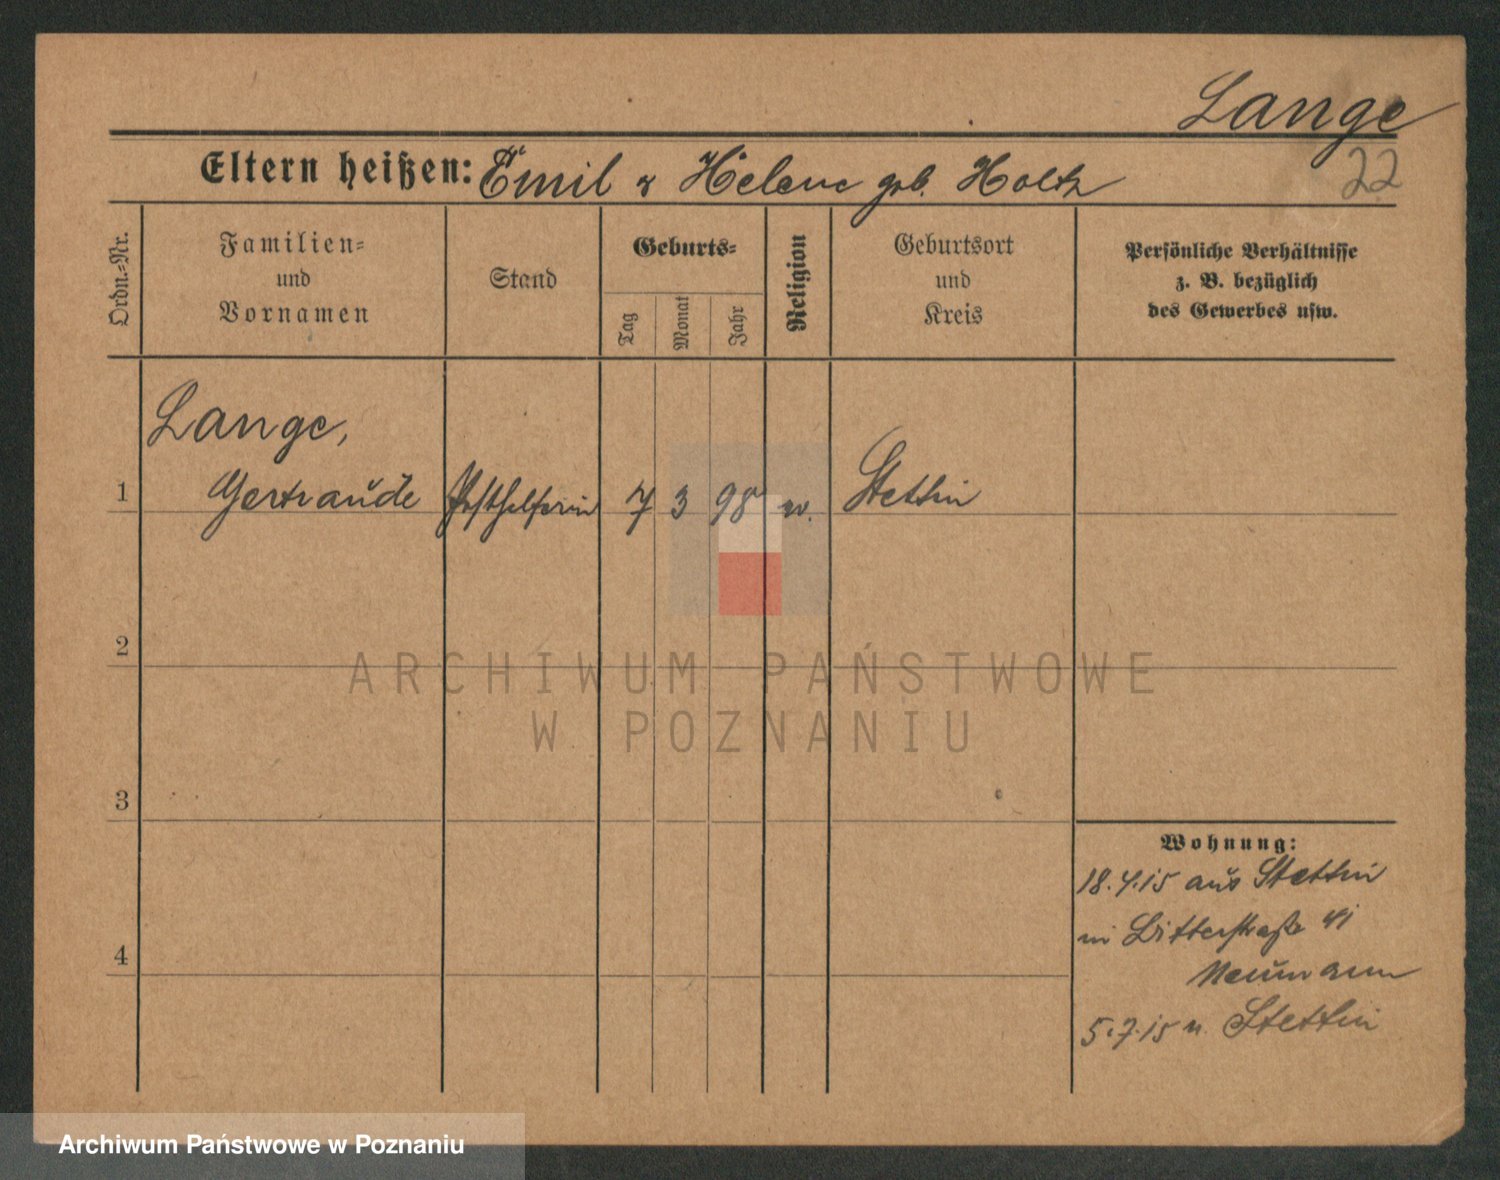 Lange
22
Eltern heißen: Emil & Helene geb. Holtz
Ordn.-Nr.
Familien-
und
Vornamen
Stand
Geburts-
Tag
Monat
Jahr
Religion
Geburtsort
und
Kreis
Persönliche Verhältnisse
z. B. bezüglich
des Gewerbes usw.
Lange,
1 Gertraude Posthelferin 7 3 98 Stettin
2
3
4
Wohnung:
18.4.15 aus Stettin
in Ritterstraße 41
Neumann
5.7.15 n. Stettin
ARCHIWUM PAŃSTWOWE
W POZNANIU
Archiwum Państwowe w Poznaniu